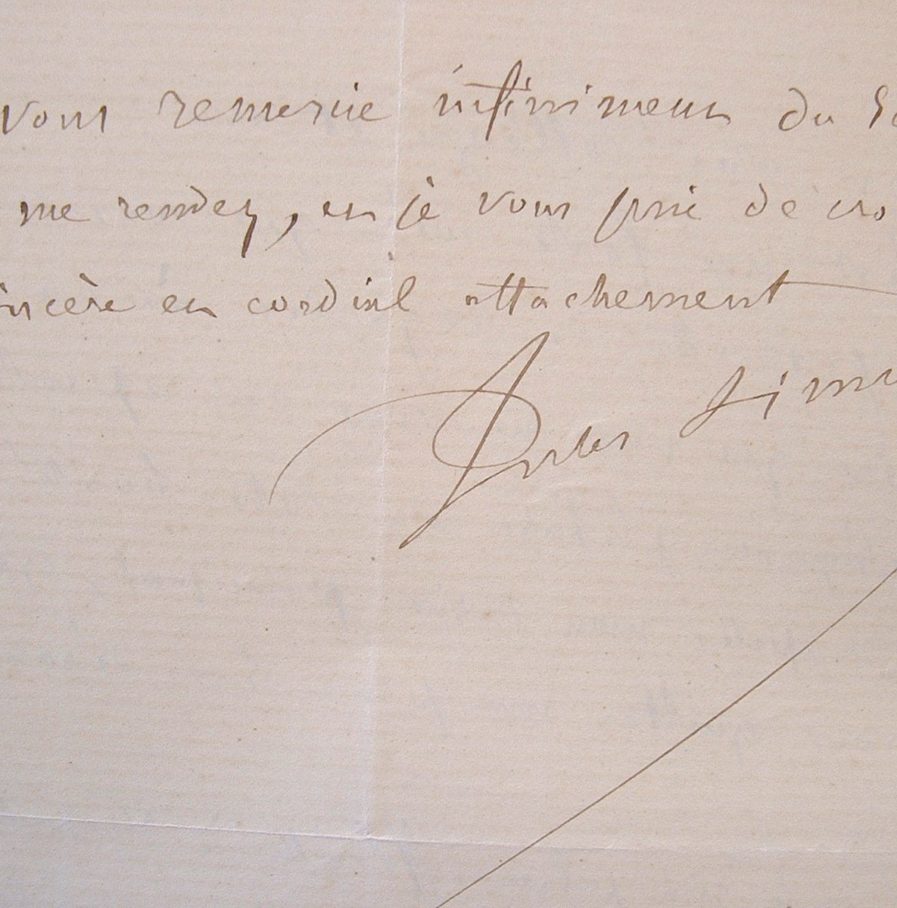 vous remercie infiniment du
me rendez, et je vous prie de cro
incère et cordial attachement
Jules Simo